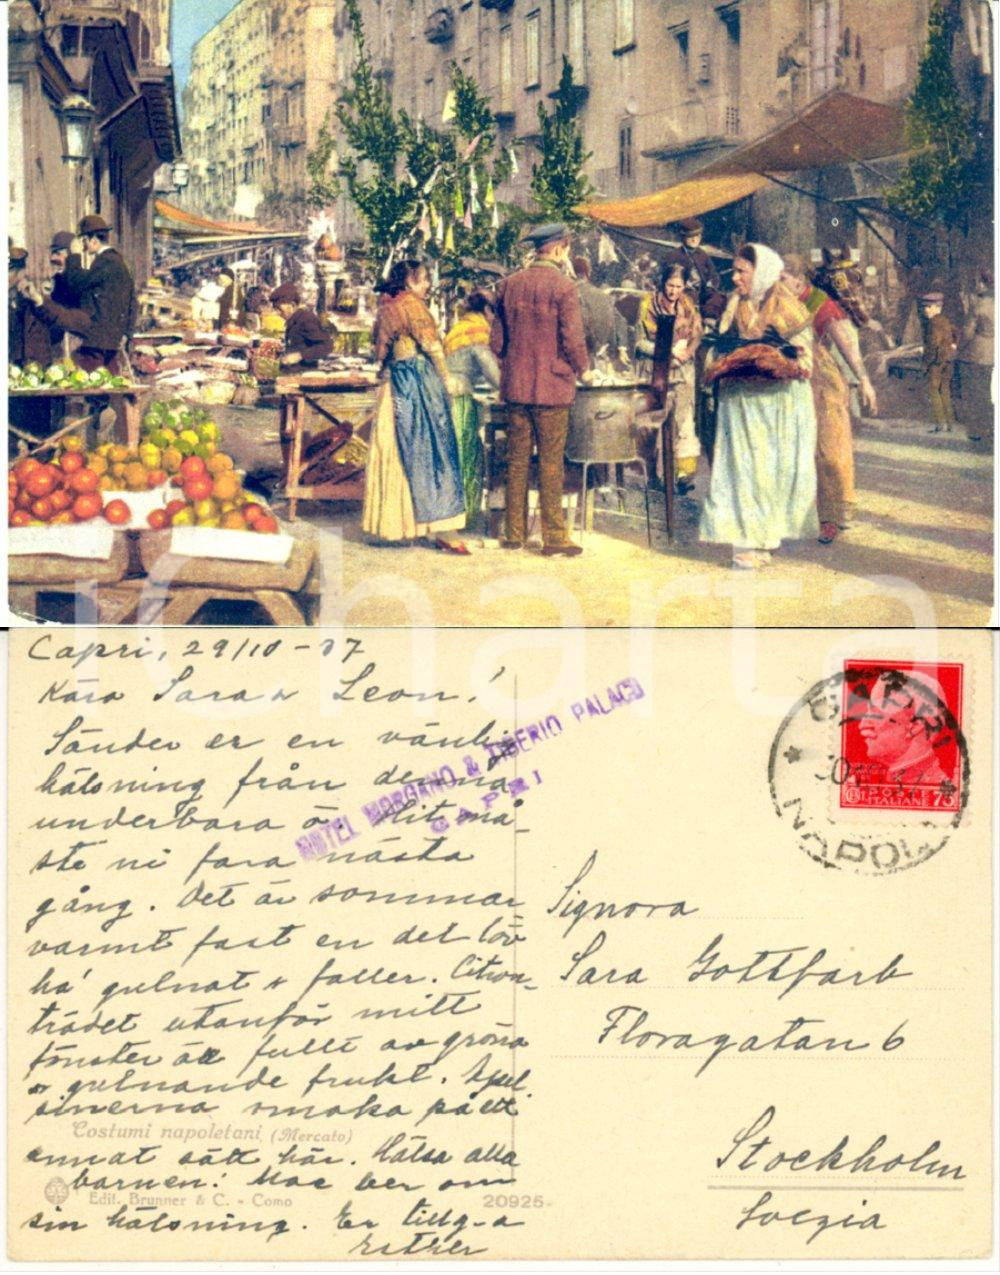 iCharta
Capri, 29/10 - 37
Kära Sara o Leon!
Sänder er en vänlig
hälsning från denna
underbara ö. Hit må-
ste ni fara nästa
gång. Det är sommar
varmt fast en del löv
ha' gulnat o faller. Citron-
trädet utanför mitt
fönster är fullt av gröna
o gulnande frukt. Apel
sinerna smaka på ett
annat sätt här. Hälsa alla
barnen! Mac ber om
sin hälsning. Er tillg-a
Esther
HOTEL MORGANO & TIBERIO PALACE
CAPRI
Costumi napoletani (Mercato)
Edit. Brunner & C. - Como
20925
CAPRI
NAPOLI
POSTE
ITALIANE 75
Signora
Sara Gottfarb
Floragatan 6
Stockholm
Svezia